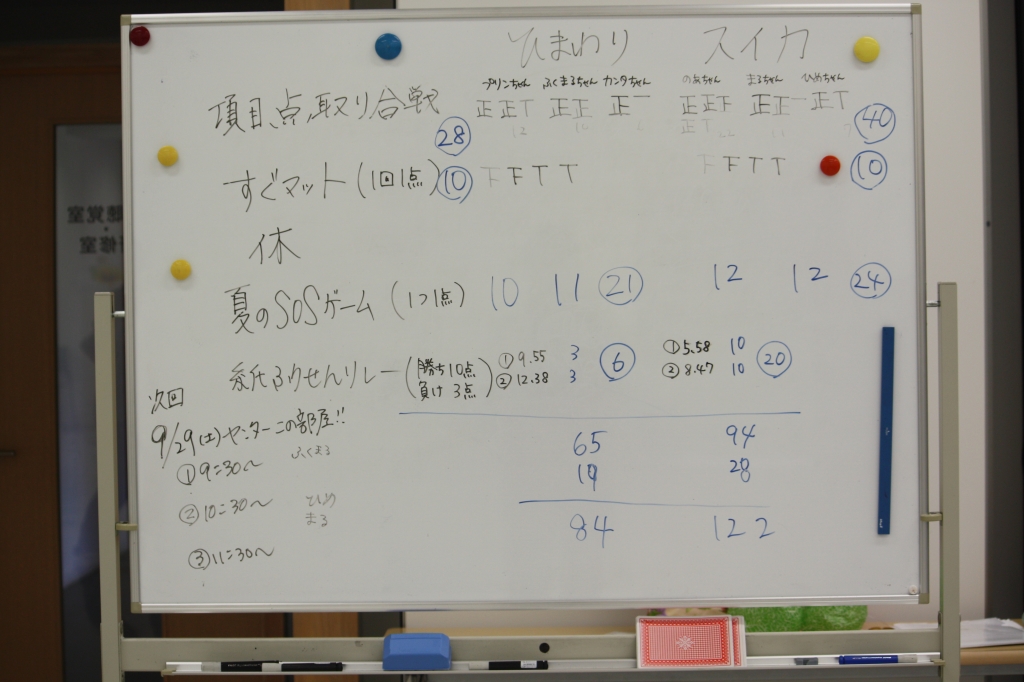 ひまわり スイカ
プリンちゃん ふくまるちゃん カンタちゃん のあちゃん まるちゃん ひめちゃん
項目点取り合戦 正正T 正正 正一 正正下 正正一 正T
正T
12 10
28 40
すぐマット(1回1点) 10 下下TT 下下TT 10
休
夏のSOSゲーム(1つ1点) 10 11 21 12 12 24
紙ふうせんリレー(勝ち10点 ①9.55 3 6 ①5.58 10 20
負け3点) ②12.38 3 ②8.47 10
次回
9/29(土)センターこの部屋!!
65 94
①9:30〜 ふくまる
19 28
②10:30〜
まる
84 122
③11:30〜
聴覚室
修室